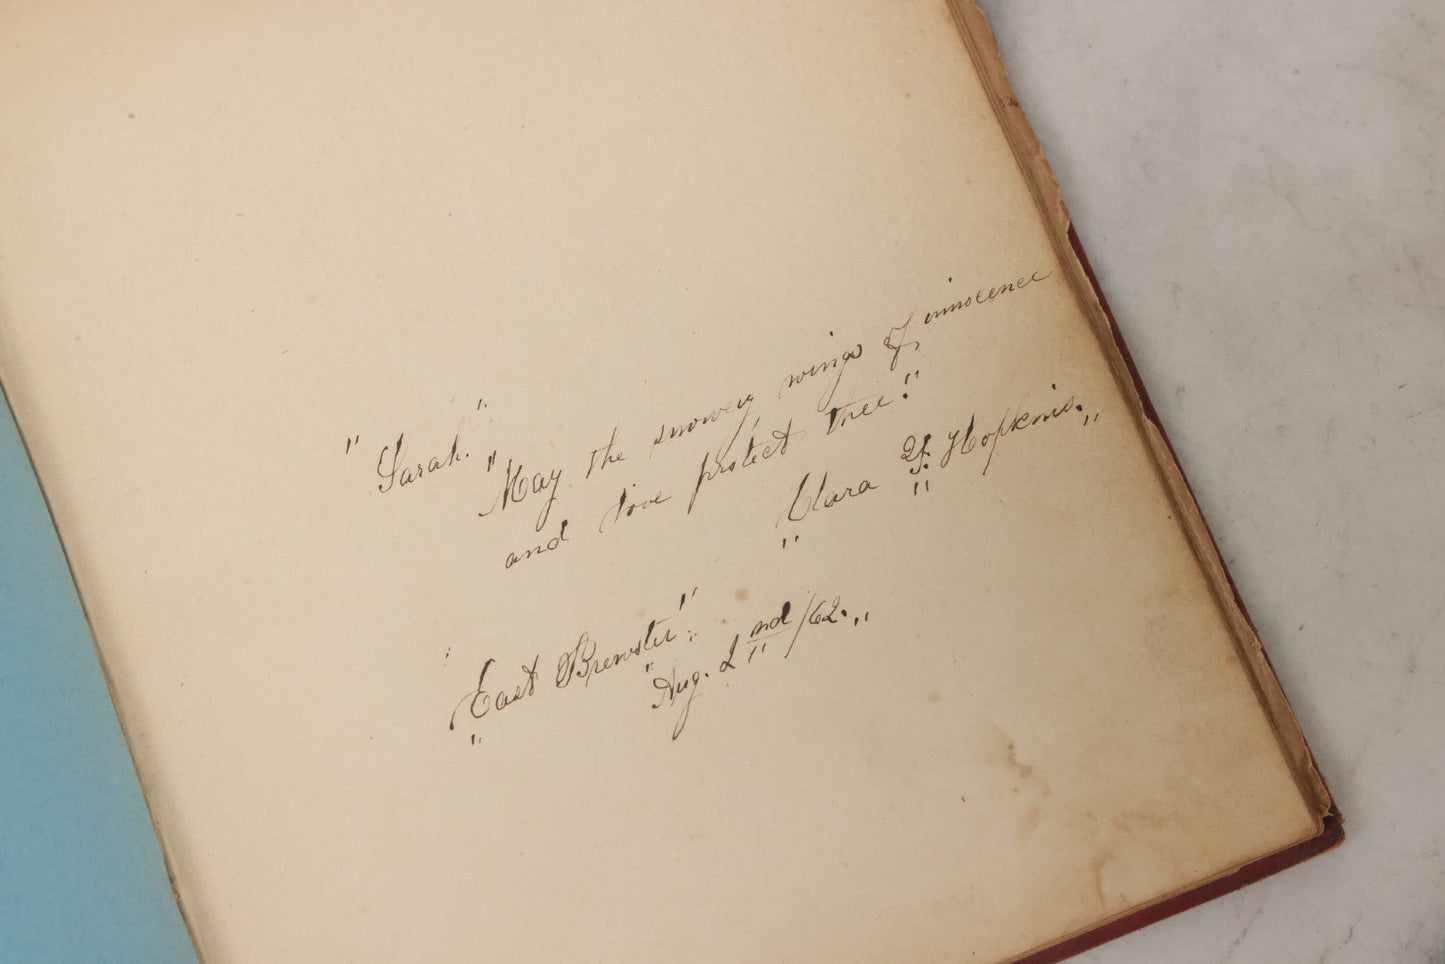 "Sarah."
"May the snowey wings of innocence
and love protect thee."
"Clara Y. Hopkins."
"East Brewster"
"Aug. 2nd/62."